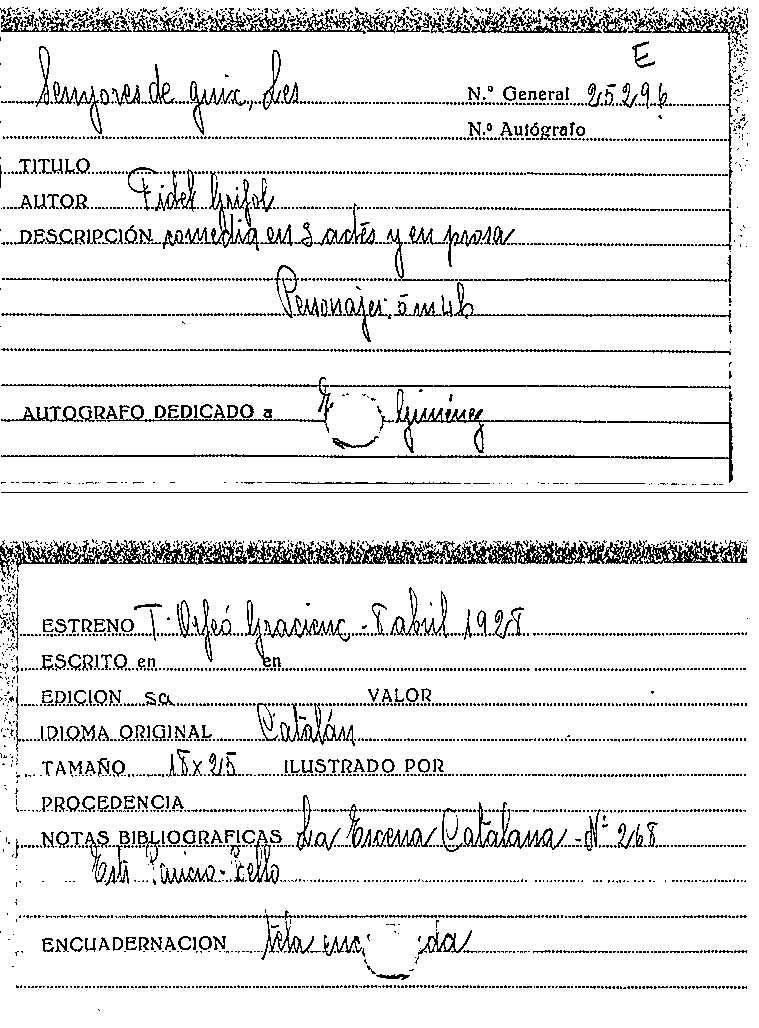 E
Senyores de guix, Les
N.º General 25296
N.º Autógrafo
TITULO
AUTOR Fidel Grifol
DESCRIPCIÓN comedia en 3 actes y en prosa
Personajes: 5 m 4 h
AUTOGRAFO DEDICADO a Giménez
ESTRENO T. Orfeó Gracienc - 8 abril 1928
ESCRITO en en
EDICION sa VALOR
IDIOMA ORIGINAL Catalán
TAMAÑO 18 x 25 ILUSTRADO POR
PROCEDENCIA
NOTAS BIBLIOGRAFICAS La Escena Catalana - Nº 268
ENCUADERNACION tela